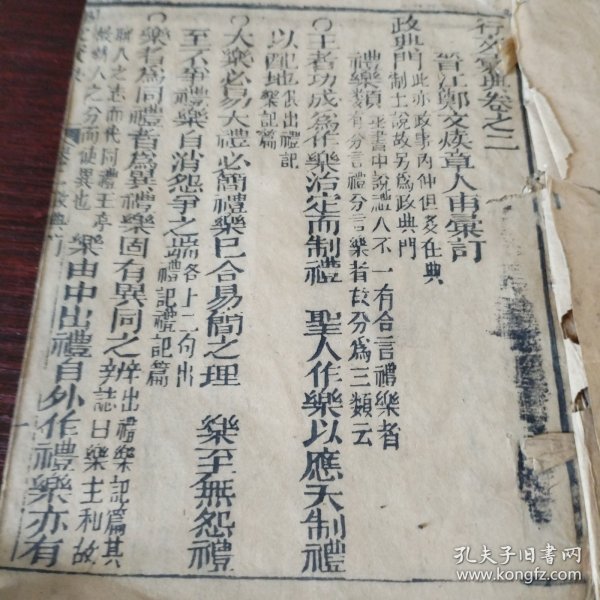 行文彙典卷之二
晉江鄭文煥章人甫彙訂
政典門 此亦政事內仲但多在典制土說故另為政典門
禮樂類 平書中說禮人不一有合言禮樂者又有分言禮分言樂者故分為三類云
○王者功成為作樂治定而制禮 聖人作樂以應天制禮
以配地 俱出禮記樂記篇
○大樂必易大禮必簡禮樂已合易簡之理 樂至無怨禮
至不爭禮樂自消怨爭之端 各上二句出禮記禮記篇
○樂者為同禮者為異禮樂固有異同之辨 出禮樂記篇其辛誌曰樂主和故
聯人之 而代同禮王 故 人之分而使異也 樂由中出禮自外作禮樂亦有
孔夫子旧书网
www.kongfz.com